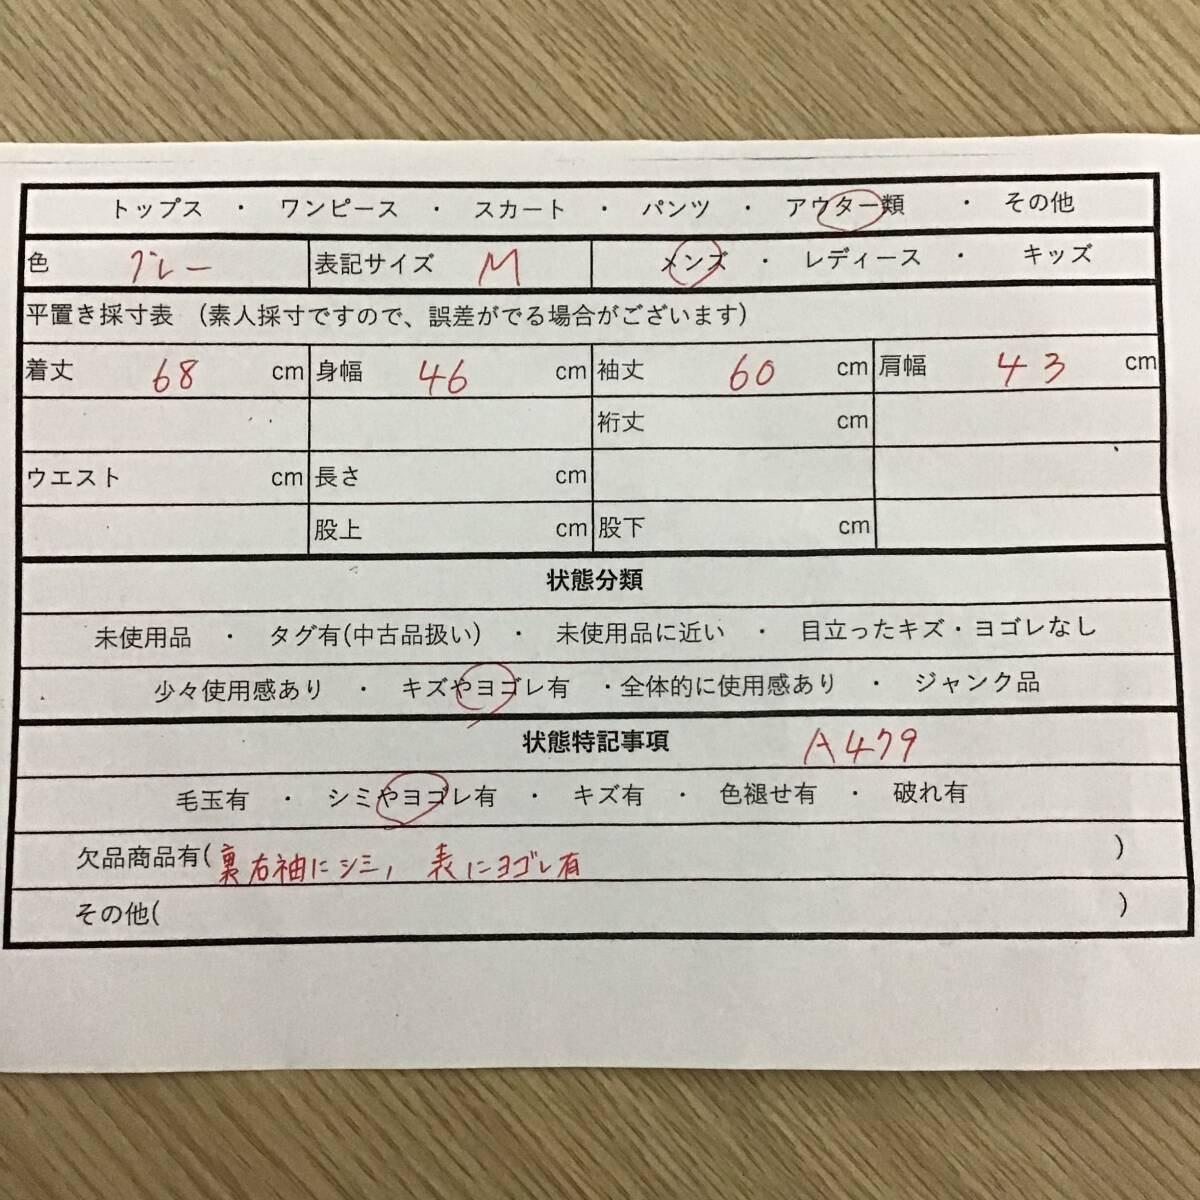 トップス ・ ワンピース ・ スカート ・ パンツ ・ アウター類 ・ その他
色 グレー 表記サイズ M メンズ ・ レディース ・ キッズ
平置き採寸表 （素人採寸ですので、誤差がでる場合がございます）
着丈 68 cm 身幅 46 cm 袖丈 60 cm 肩幅 43 cm
裄丈 cm
ウエスト cm 長さ cm
股上 cm 股下 cm
状態分類
未使用品 ・ タグ有(中古品扱い) ・ 未使用品に近い ・ 目立ったキズ・ヨゴレなし
少々使用感あり ・ キズやヨゴレ有 ・全体的に使用感あり ・ ジャンク品
状態特記事項 A479
毛玉有 ・ シミやヨゴレ有 ・ キズ有 ・ 色褪せ有 ・ 破れ有
欠品商品有( 裏右袖にシミ, 表にヨゴレ有 )
その他( )